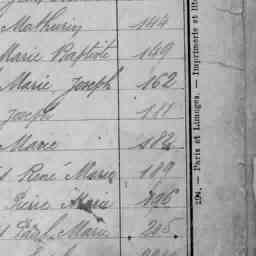 Mathurin 144
Marie Baptiste 149
Marie Joseph 162
Joseph 111
Marie 182
René Marie 189
Pierre Marie 196
Paul Marie 215
294. — Paris et Limoges. — Imprimerie et